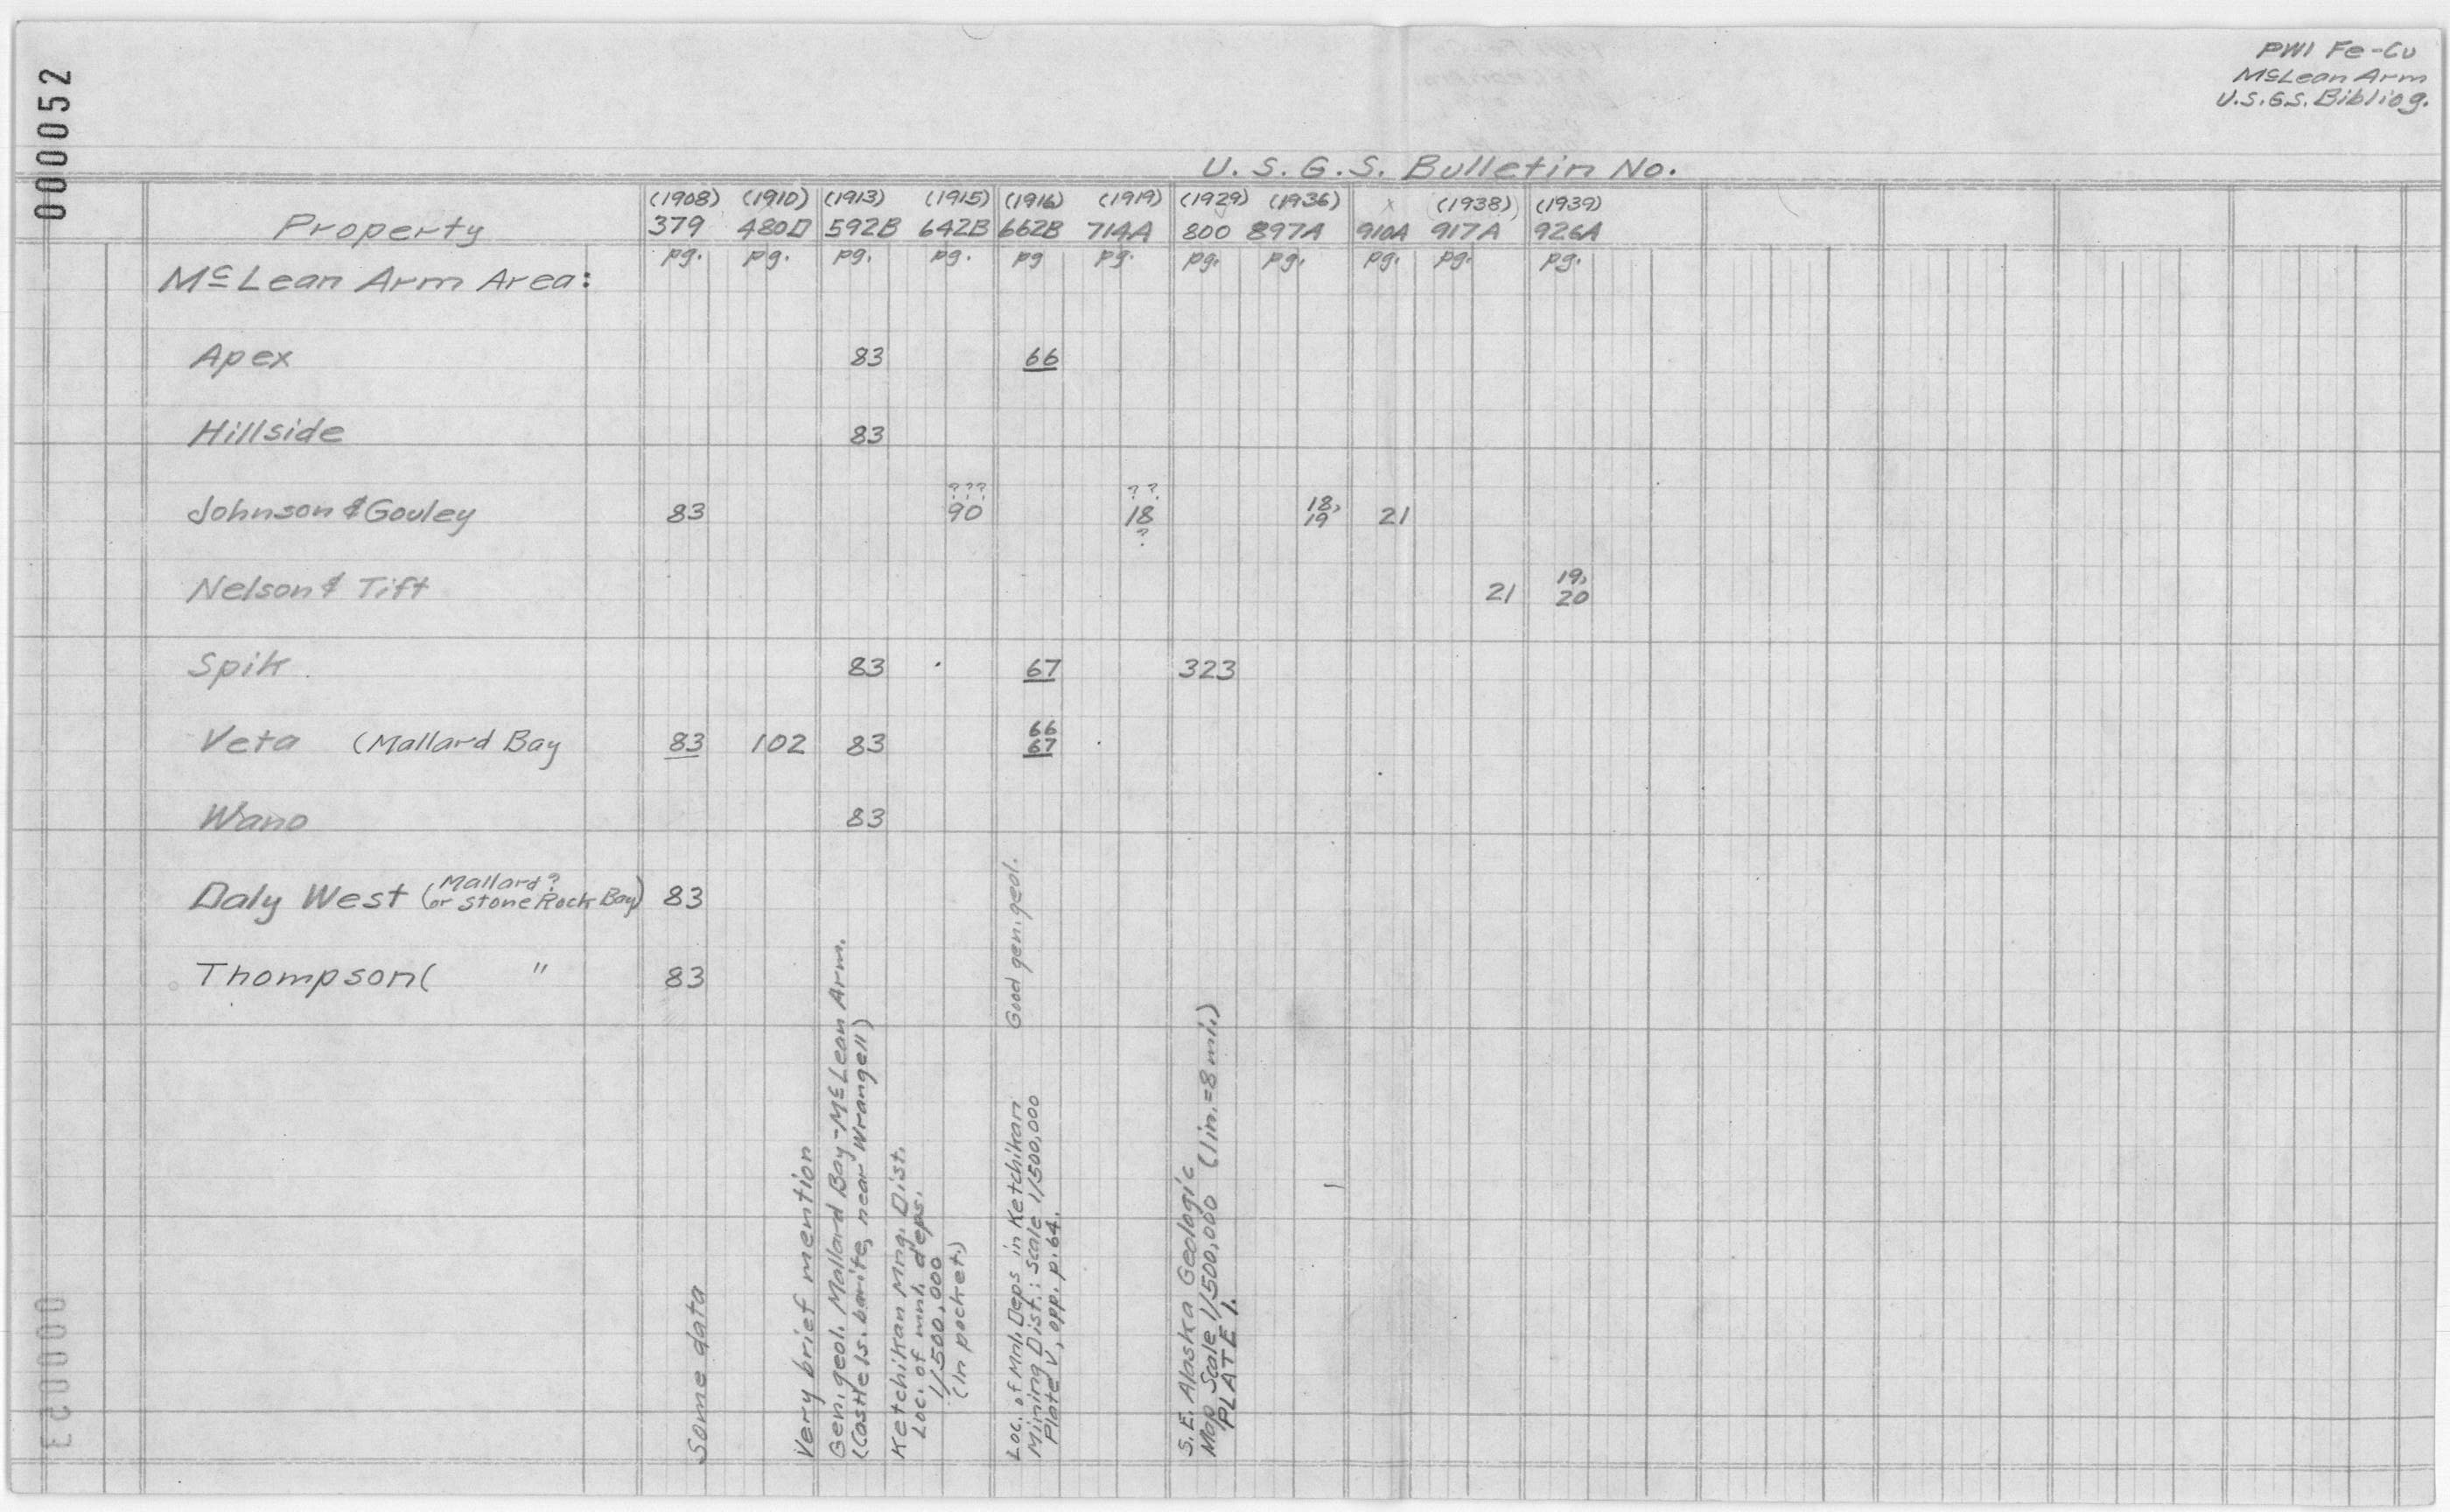 000052
PWI Fe-Cu
McLean Arm
U.S.G.S. Bibliog.
U.S.G.S. Bulletin No.
(1908) (1910) (1913) (1915) (1916) (1919) (1929) (1936) (1938) (1939)
Property 379 480D 592B 642B 662B 714A 800 897A 910A 917A 926A
pg. pg. pg. pg. pg pg. pg. pg. pg. pg. pg.
McLean Arm Area:
Apex 83 66
Hillside 83
??? ??
Johnson & Gouley 83 90 18 18, 19 21
?
Nelson & Tift 21 19, 20
Spik 83 67 323
Veta (Mallard Bay 83 102 83 66 67
Wano 83
Daly West (Mallard? or Stone Rock Bay) 83
Thompson ( " 83
Some data
Very brief mention
Gen. geol. Mallard Bay-McLean Arm.
(Castle Is. barite, near Wrangell)
Ketchikan Mng. Dist.
Loc. of mnl. deps.
1/500,000
(In pocket.)
Good gen. geol.
Loc. of Mnl. Deps in Ketchikan
Mining Dist.: Scale 1/500,000
Plate V, opp. p. 64.
S.E. Alaska Geologic
Map Scale 1/500,000 (1 in. = 8 mi.)
PLATE 1.